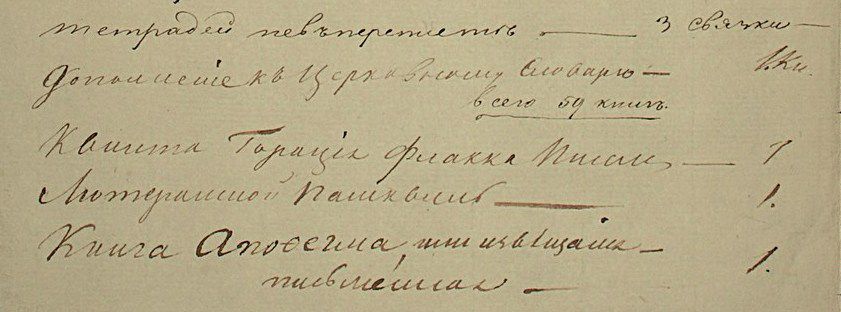 тетрадей невъпереплетѣ — 3 связки —
Дополнение къ Церковному Словарю — 1. Кн.
всего 59 книгъ.
Квинта Горація Флакка Письмы — 1
Лютеранской Пашквиль — 1.
Книга Апоѳегма или извѣщания — 1.
письменная —